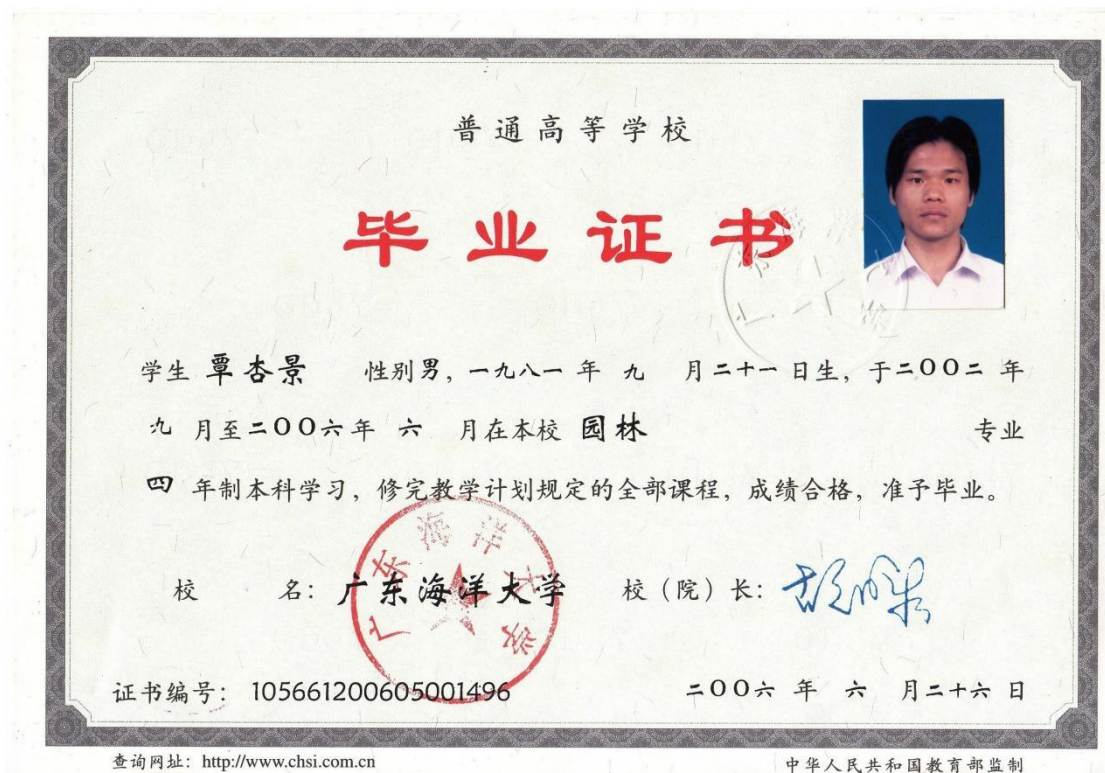 普通高等学校
毕业证书
学生 覃杏景 性别男，一九八一 年 九 月二十一 日生，于二〇〇二 年
九 月至二〇〇六年 六 月在本校 园林 专业
四 年制本科学习，修完教学计划规定的全部课程，成绩合格，准予毕业。
校 名：广东海洋大学 校（院）长：
广东海洋大学
证书编号： 105661200605001496 二〇〇六 年 六 月二十六 日
查询网址：http://www.chsi.com.cn 中华人民共和国教育部监制